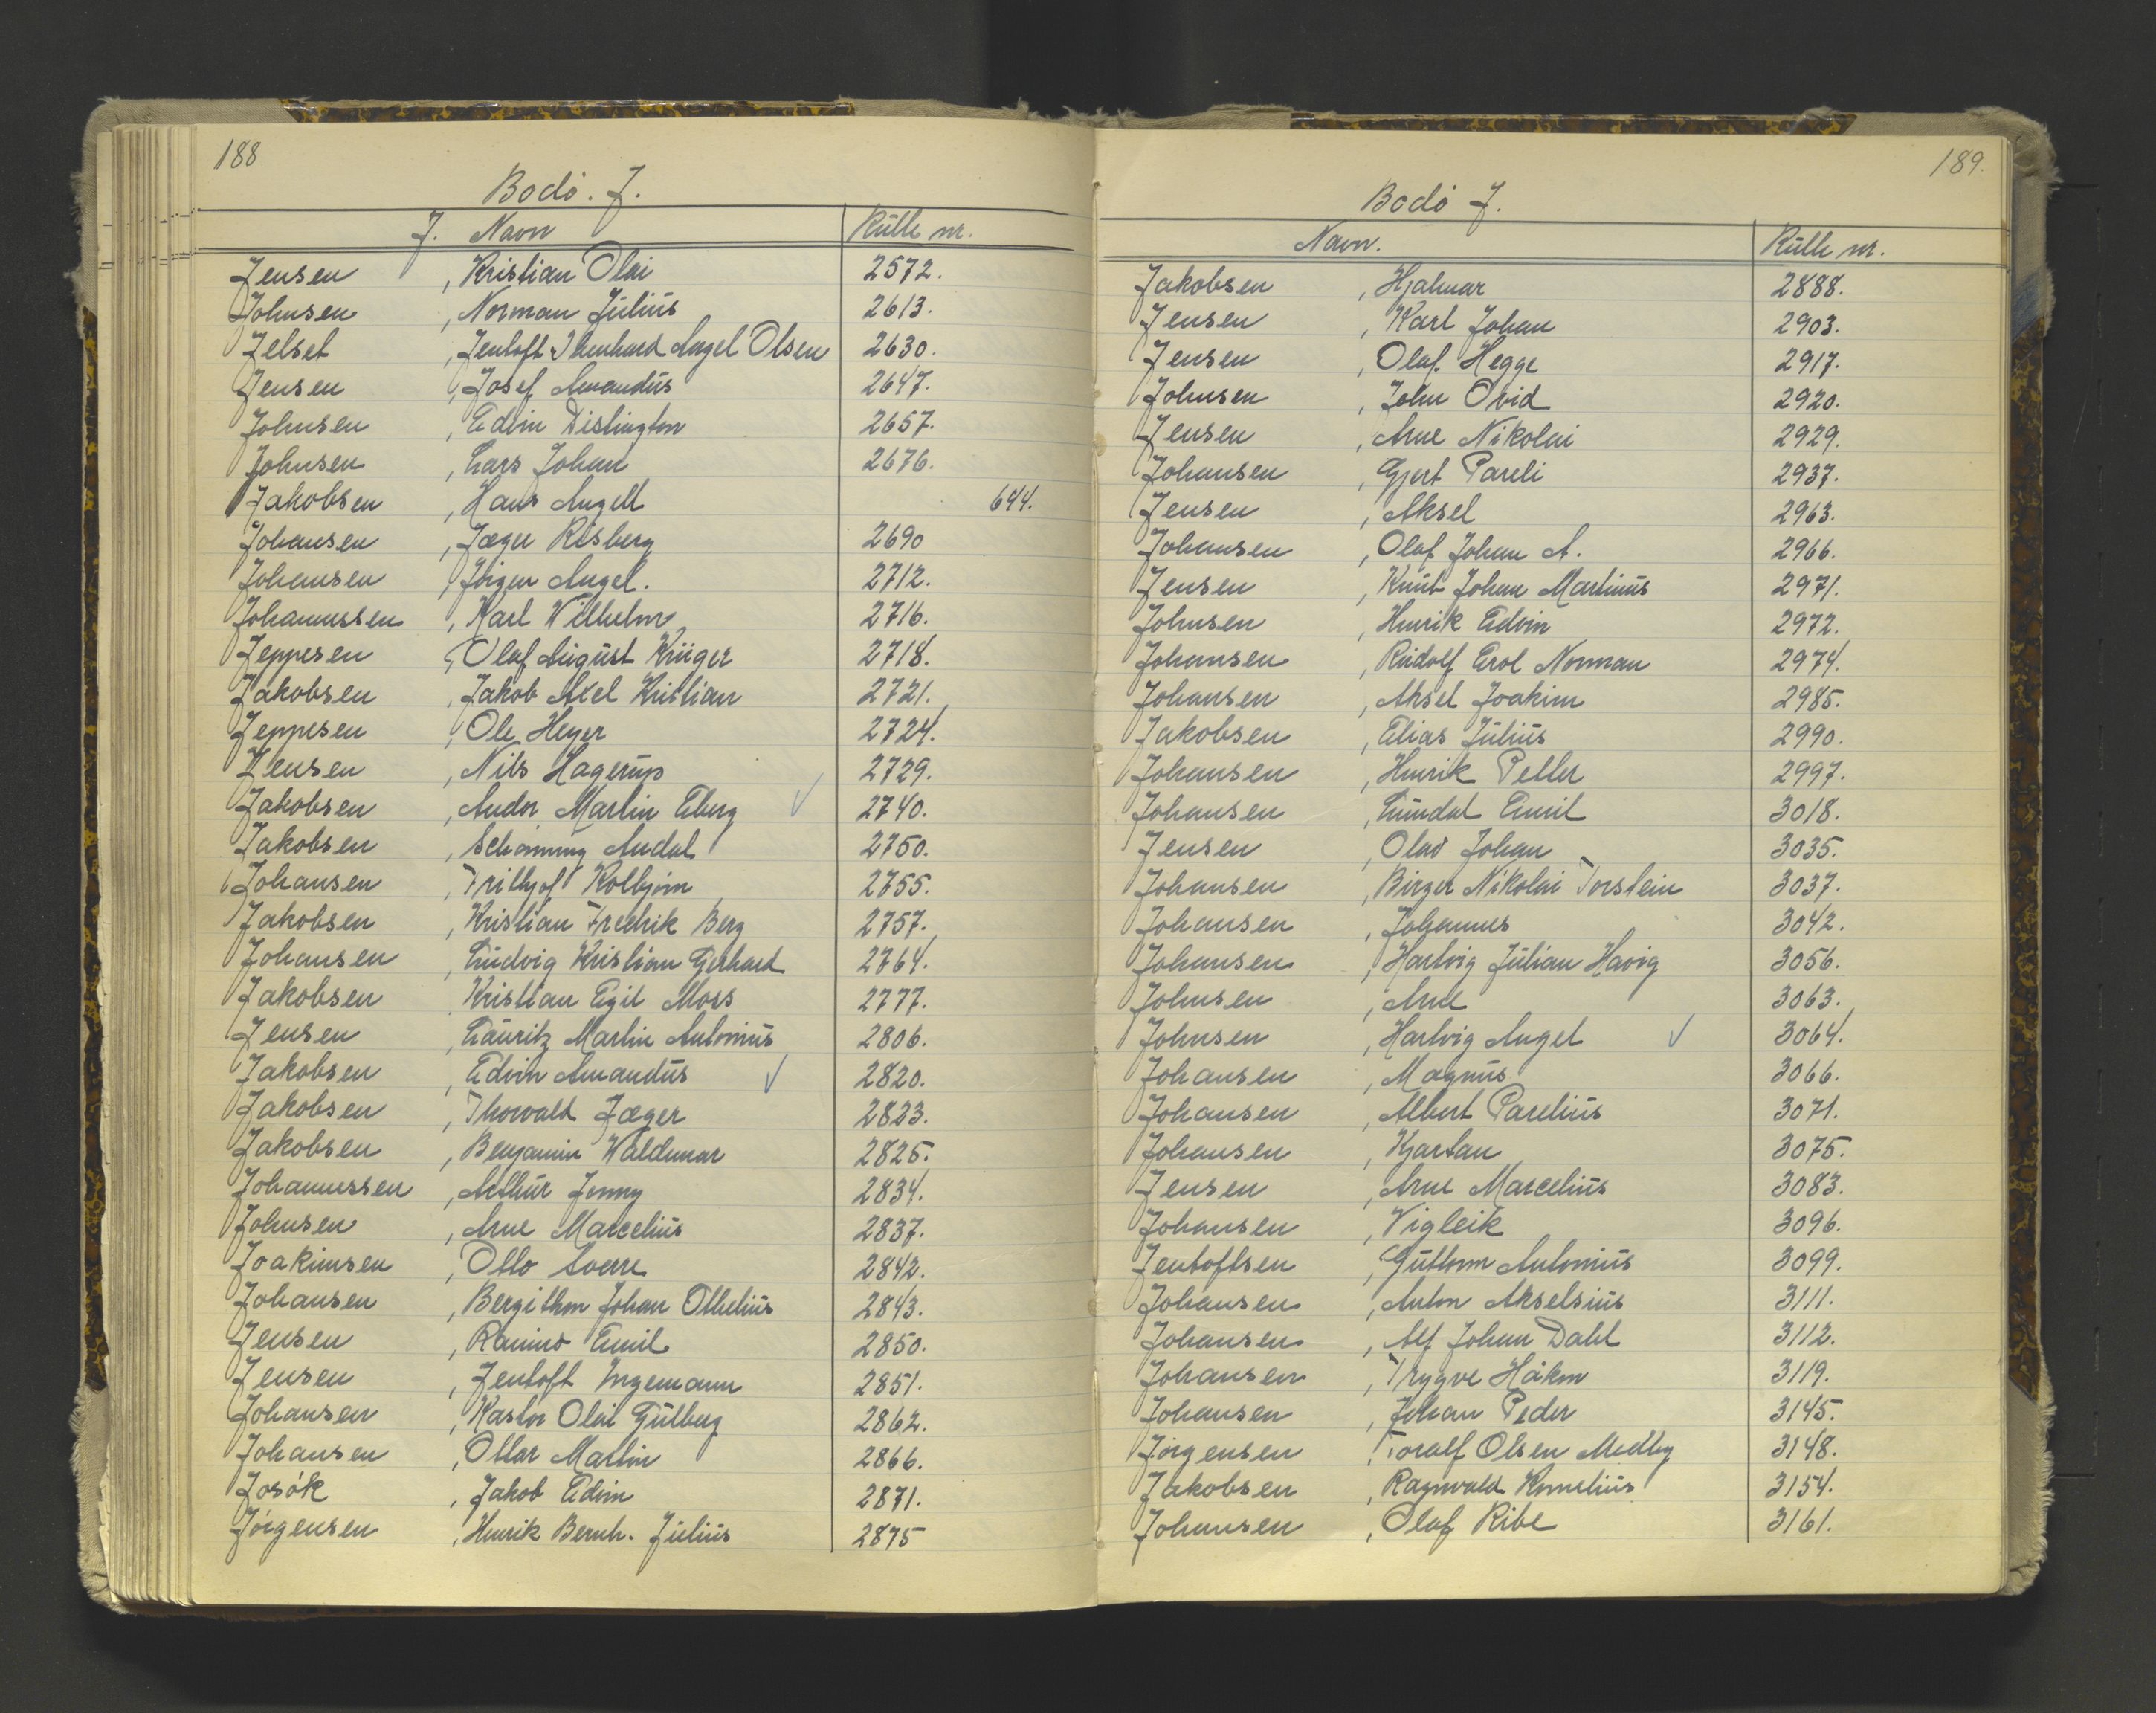 188
Bodø. J.
J. Navn Rulle nr.
Jensen , Kristian Olai 2572.
Johnsen , Norman Julius 2613.
Jelset , Jentoft Olsen 2630.
Jensen , Josef Amandus 2647.
Johnsen , Edvin Distington 2657.
Johnsen , Lars Johan 2676.
Jakobsen , Hans Angell 644.
Johansen , Jæger Risberg 2690
Johansen , Jørgen Angel. 2712.
Johannessen , Karl Wilhelm 2716.
Jeppesen , Olaf August Krüger 2718.
Jakobsen , Jakob Axel Kristian 2721.
Jeppesen , Ole Heyer 2724.
Jensen , Nils Hagerup 2729.
Jakobsen , Andor Martin Eberg ✓ 2740.
Jakobsen , Schønning Andal 2750.
Johansen , Frithjof Kolbjørn 2755.
Jakobsen , Kristian Fredrik Berg 2757.
Johansen , Ludvig Kristian Gerhard 2764.
Jakobsen , Kristian Egil Moss 2777.
Jensen , Lauritz Martin Antonius 2806.
Jakobsen , Edvin Amandus ✓ 2820.
Jakobsen , Thorvald Jæger 2823.
Jakobsen , Benjamin Waldemar 2825.
Johannessen , Arthur Jonny 2834.
Johnsen , Arne Marcelius 2837.
Joakimsen , Otto Sverre 2842.
Johansen , Bergithon Johan Othelius 2843.
Jensen , Emil 2850.
Jensen , Jentoft Ingemann 2851.
Johansen , Kastor Olai Gulberg 2862.
Johansen , Ottar Martin 2866.
Josøk , Jakob Edvin 2871.
Jørgensen , Henrik Bernh. Julius 2875
189.
Bodø J.
Navn. Rulle nr.
Jakobsen , Hjalmar 2888.
Jensen , Karl Johan 2903.
Jensen , Olaf. Hegge 2917.
Johnsen , John Ovid 2920.
Jensen , Arne Nikolai 2929.
Johansen , Gjert Pareli 2937.
Jensen , Aksel 2963.
Johansen , Olaf Johan A. 2966.
Jensen , Knut Johan Martinus 2971.
Johnsen , Henrik Edvin 2972.
Johansen , Rudolf Erol Norman 2974.
Johansen , Aksel Joakim 2985.
Jakobsen , Elias Julius 2990.
Johansen , Henrik Petter 2997.
Johansen , Emil 3018.
Jensen , Olav Johan 3035.
Johansen , Birger Nikolai Torstein 3037.
Johansen , Johannes 3042.
Johansen , Hartvig Julian Havig 3056.
Johnsen , Arne 3063.
Johnsen , Hartvig Angel ✓ 3064.
Johansen , Magnus 3066.
Johansen , Albert Parelius 3071.
Johansen , Kjartan 3075.
Jensen , Arne Marcelius 3083.
Johansen , Vigleik 3096.
Jentoftsen , Guttorm Antonius 3099.
Johansen , Anton Akselsius 3111.
Johansen , Alf Johan Dahl 3112.
Johansen , Trygve Håkon 3119.
Johansen , Johan Peder 3145.
Jørgensen , Toralf Olsen Medby 3148.
Jakobsen , Ragnvald Kornelius 3154.
Johansen , Olaf Ribe 3161.